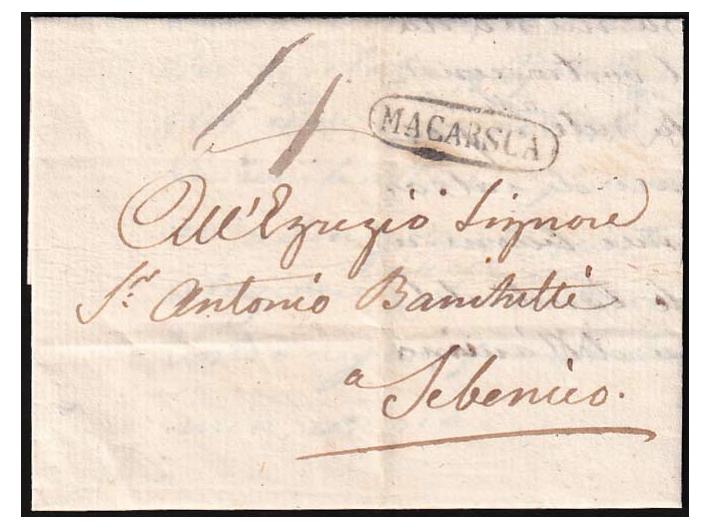 4
MACARSCA
All'Egregio Signore
Sr. Antonio Banchetti
a Sebenico.